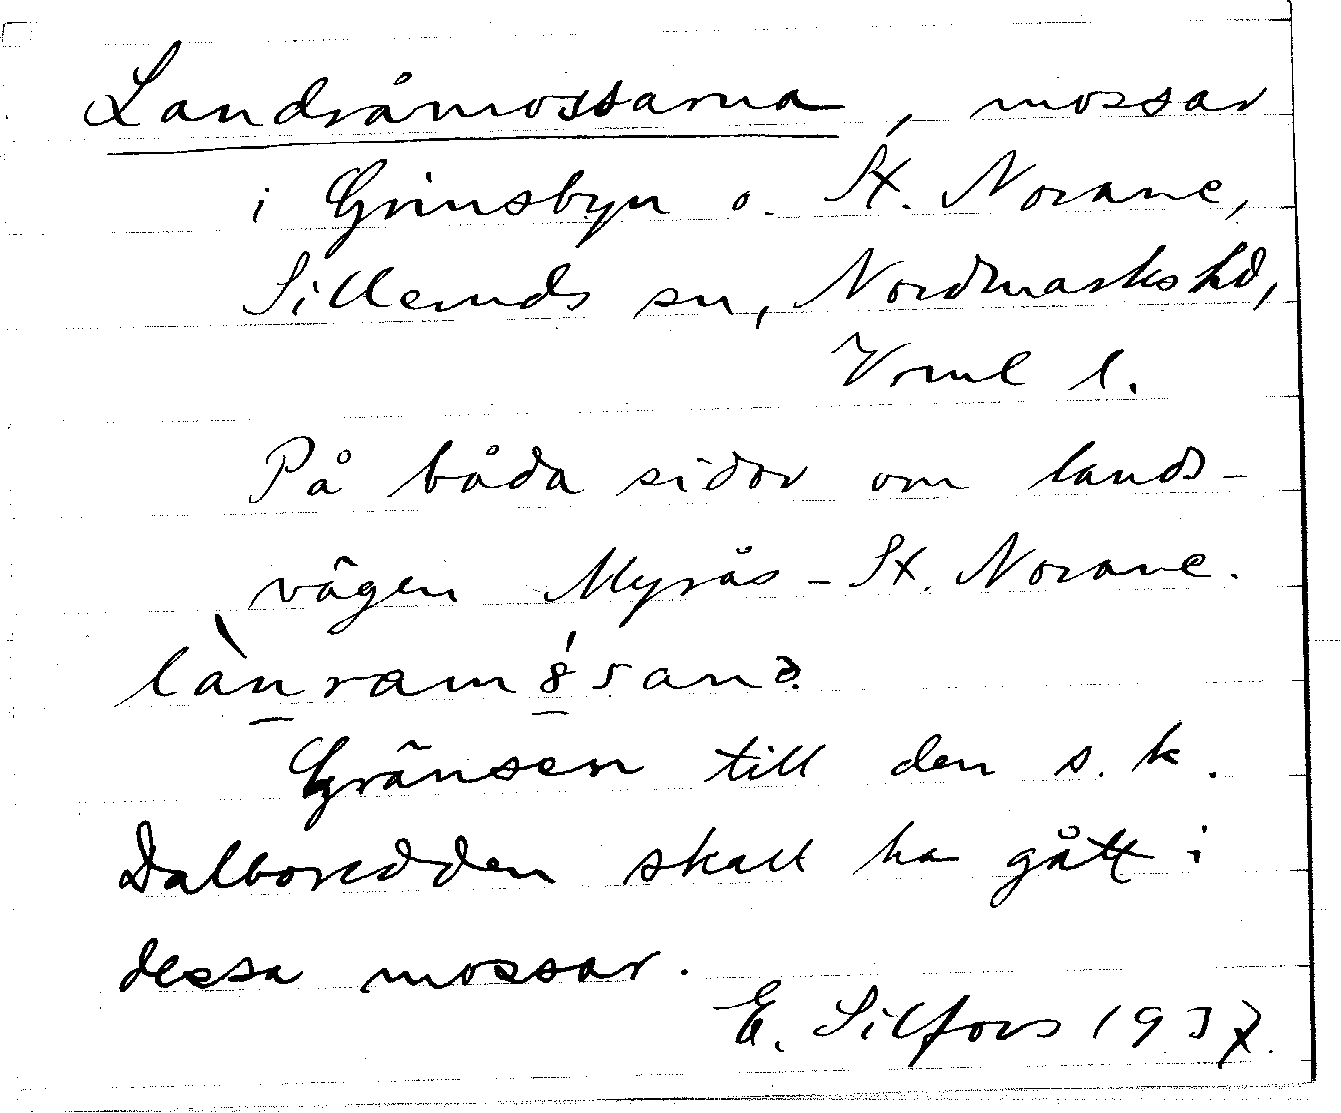 Landråmossarna, mossar
i Grinsbyn o. St. Norane,
Silleruds sn, Nordmarks hd,
Vrml l.
På båda sidor om lands-
vägen Myrås - St. Norane.
Gränsen till den s. k.
Dalboredden skall ha gått i
dessa mossar.
E. Silfors 1937.